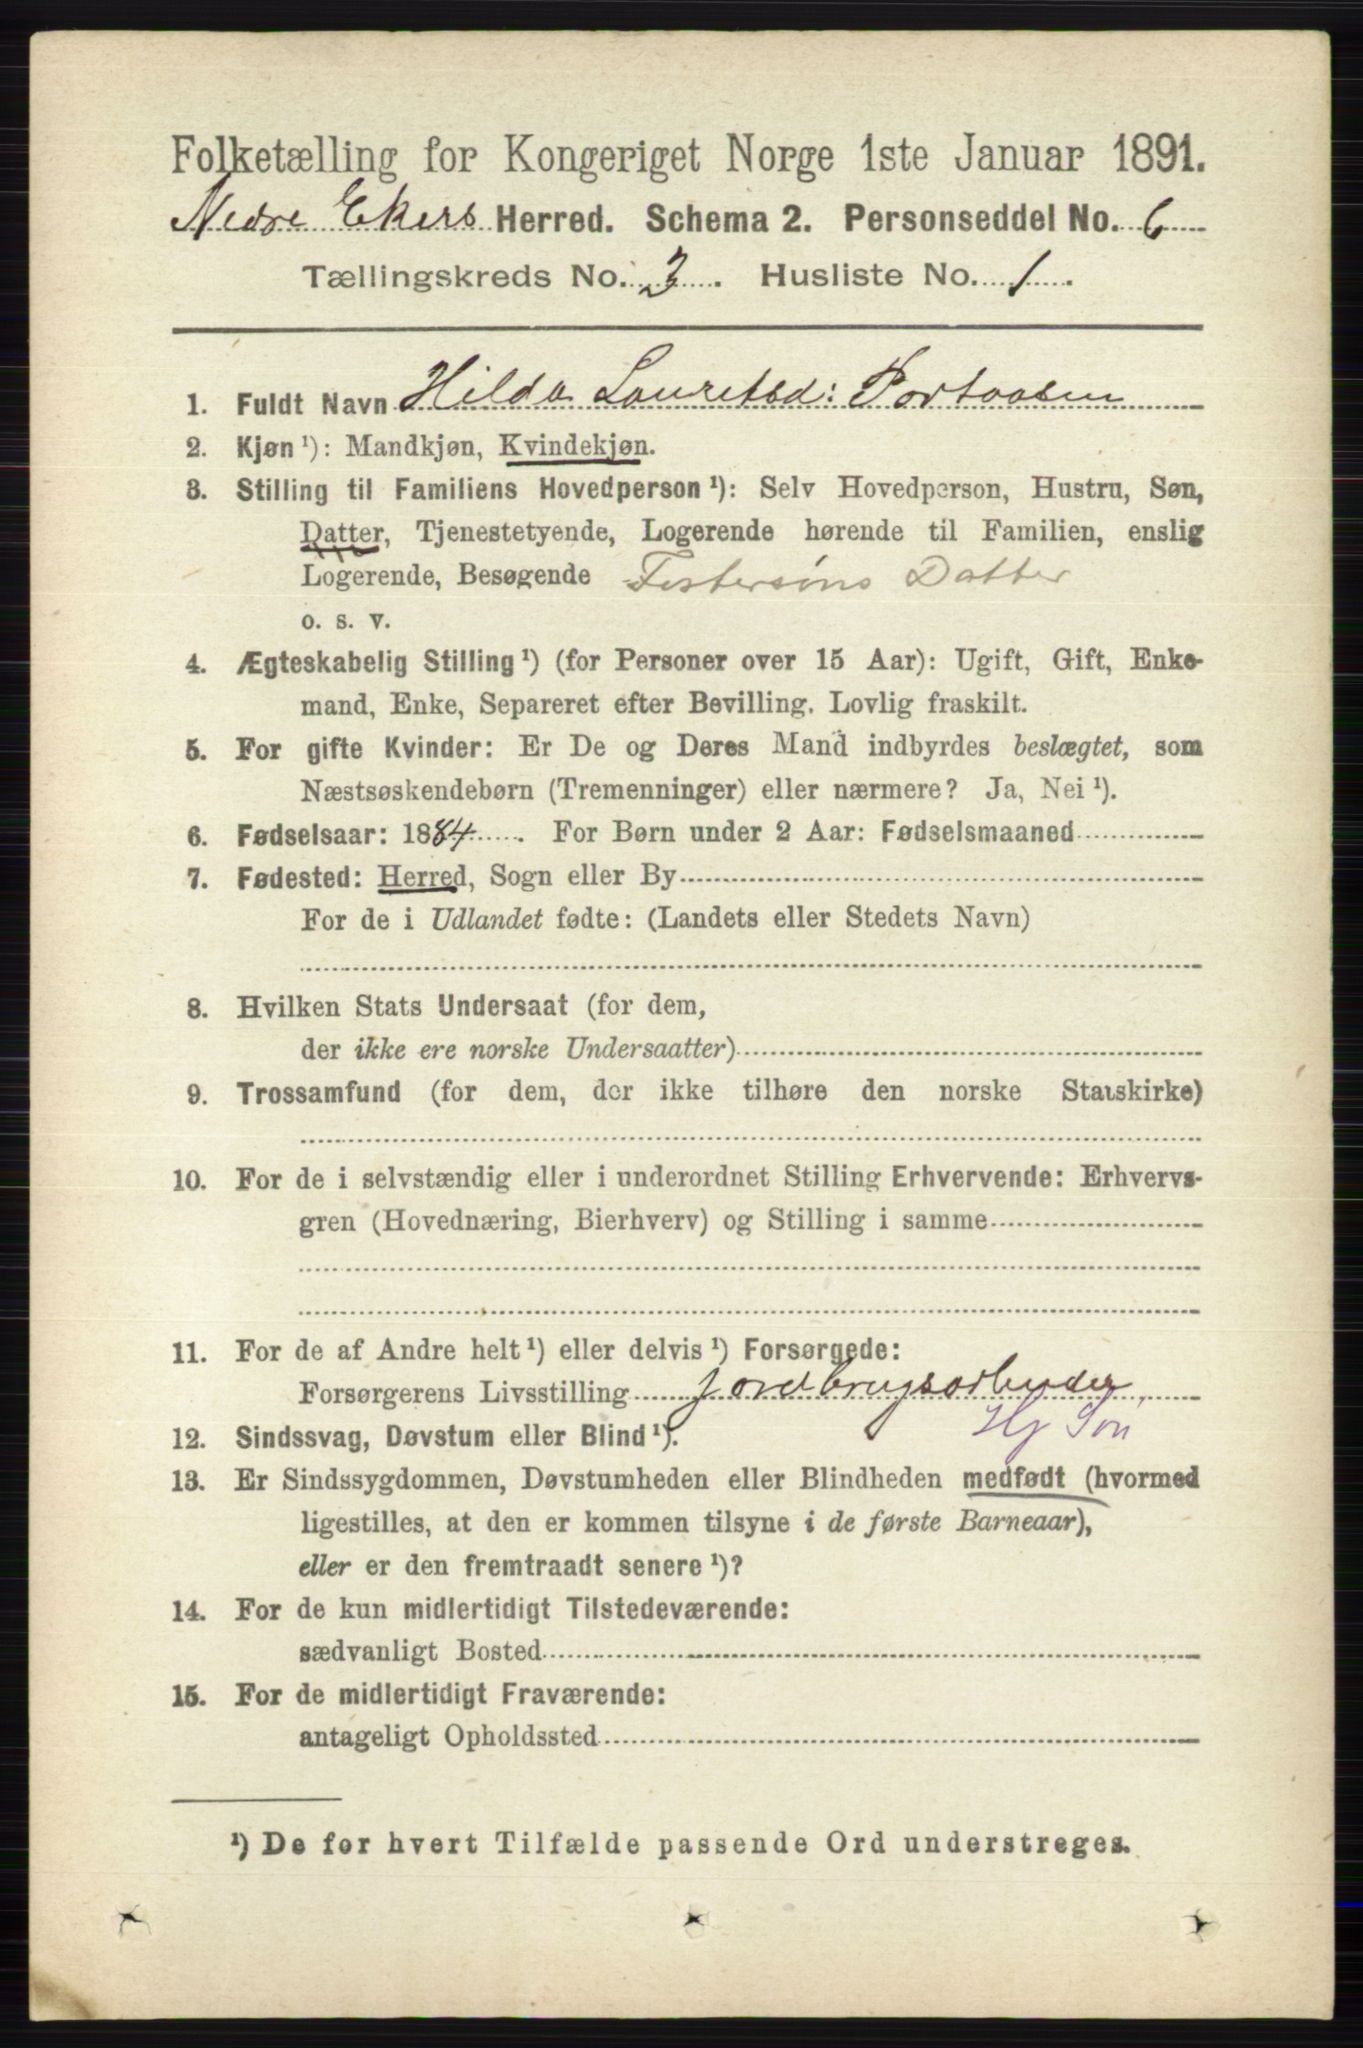 Folketælling for Kongeriget Norge 1ste Januar 1891.
Nedre Ekers Herred. Schema 2. Personseddel No. 6
Tællingskreds No. 3. Husliste No. 1.
1. Fuldt Navn Hilda Lauretsd: Portaasen
2. Kjøn ¹): Mandkjøn, Kvindekjøn.
3. Stilling til Familiens Hovedperson ¹): Selv Hovedperson, Hustru, Søn,
Datter, Tjenestetyende, Logerende hørende til Familien, enslig
Logerende, Besøgende Fostersøns Datter
o. s. v.
4. Ægteskabelig Stilling ¹) (for Personer over 15 Aar): Ugift, Gift, Enke-
mand, Enke, Separeret efter Bevilling. Lovlig fraskilt.
5. For gifte Kvinder: Er De og Deres Mand indbyrdes beslægtet, som
Næstsøskendebørn (Tremenninger) eller nærmere? Ja, Nei ¹).
6. Fødselsaar: 1884. For Børn under 2 Aar: Fødselsmaaned
7. Fødested: Herred, Sogn eller By
For de i Udlandet fødte: (Landets eller Stedets Navn)
8. Hvilken Stats Undersaat (for dem,
der ikke ere norske Undersaatter)
9. Trossamfund (for dem, der ikke tilhøre den norske Statskirke)
10. For de i selvstændig eller i underordnet Stilling Erhvervende: Erhvervs-
gren (Hovednæring, Bierhverv) og Stilling i samme
11. For de af Andre helt ¹) eller delvis ¹) Forsørgede:
Forsørgerens Livsstilling Jordbrugsarbeider
Hj Søn
12. Sindssvag, Døvstum eller Blind ¹).
13. Er Sindssygdommen, Døvstumheden eller Blindheden medfødt (hvormed
ligestilles, at den er kommen tilsyne i de første Barneaar),
eller er den fremtraadt senere ¹)?
14. For de kun midlertidigt Tilstedeværende:
sædvanligt Bosted
15. For de midlertidigt Fraværende:
antageligt Opholdssted
¹) De for hvert Tilfælde passende Ord understreges.